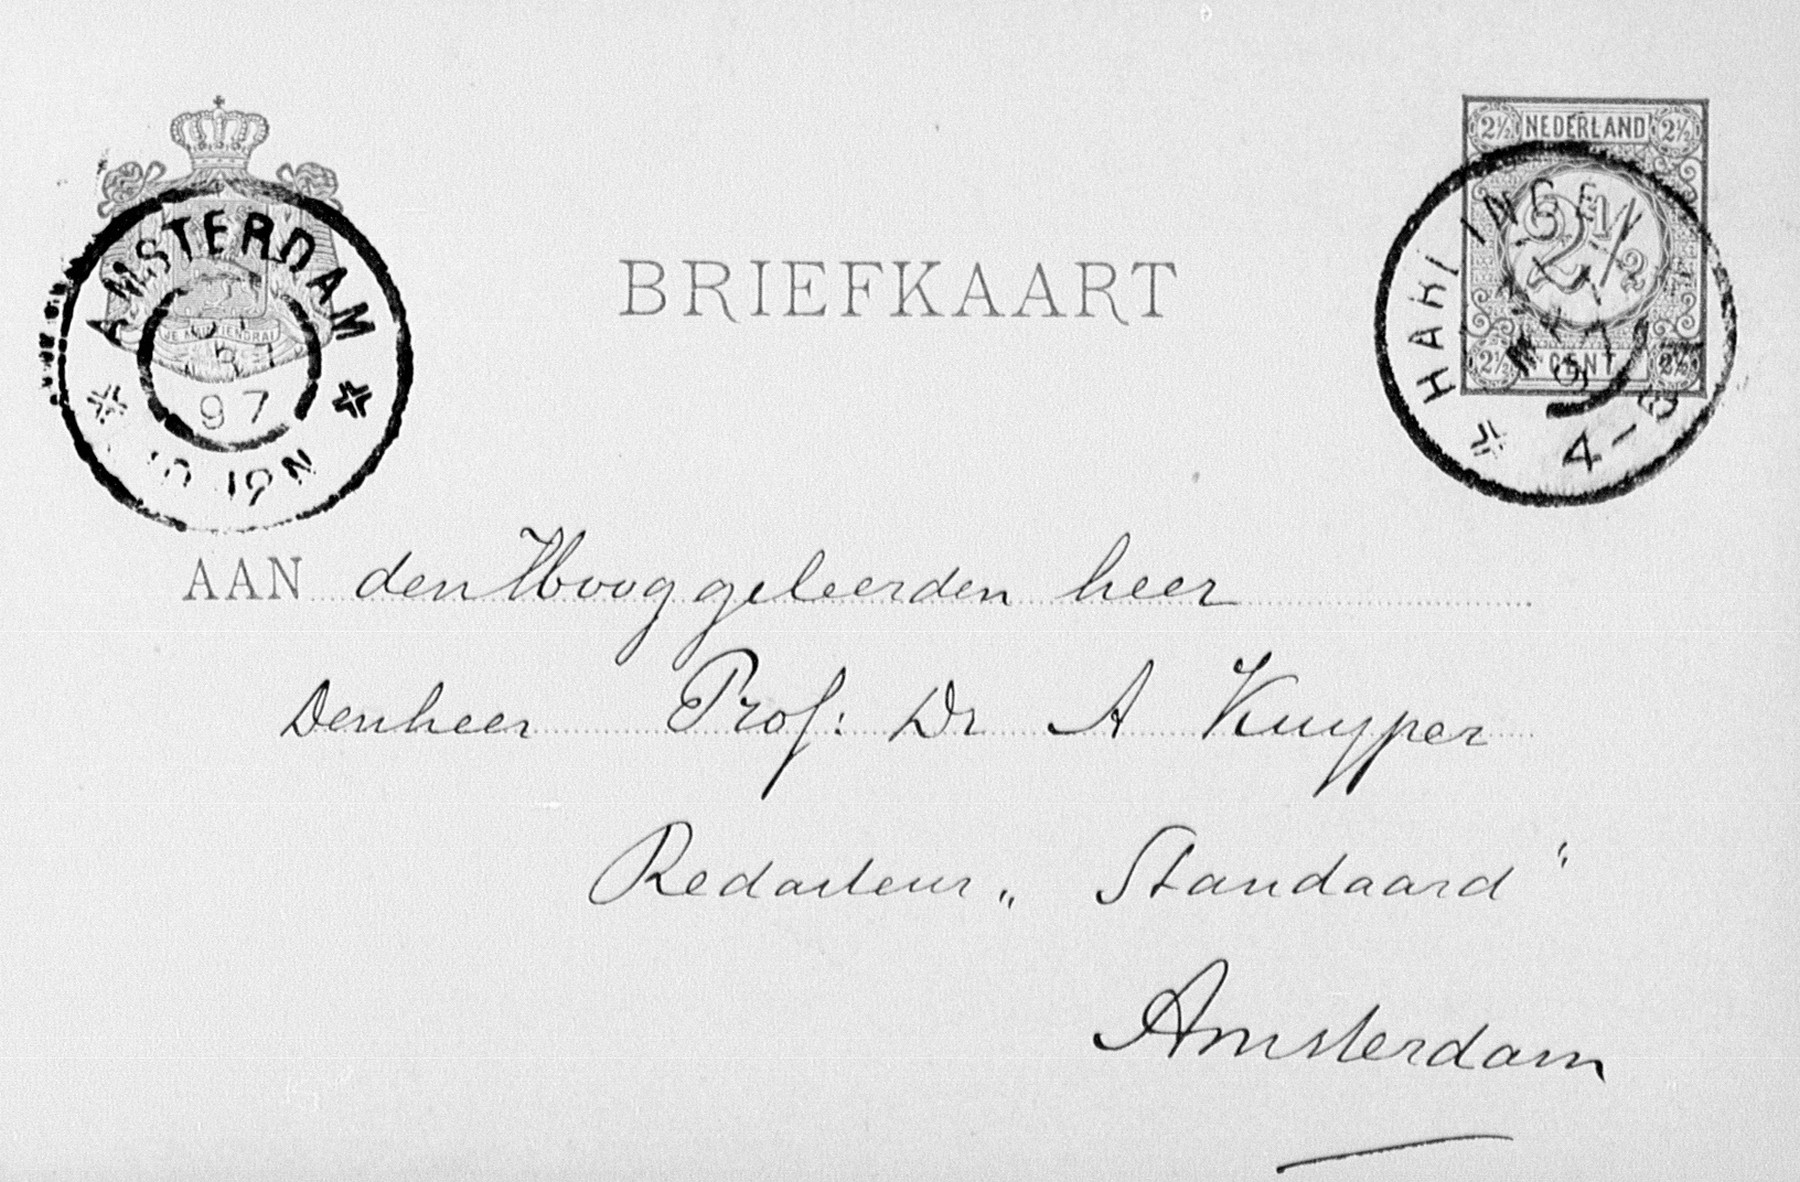 2½ NEDERLAND 2½
2½
2½ CENT 2½
HARLINGEN
4-5
AMSTERDAM
97
BRIEFKAART
AAN den Hooggeleerden heer
Den heer Prof: Dr A Kuyper
Redacteur „ Standaard "
Amsterdam